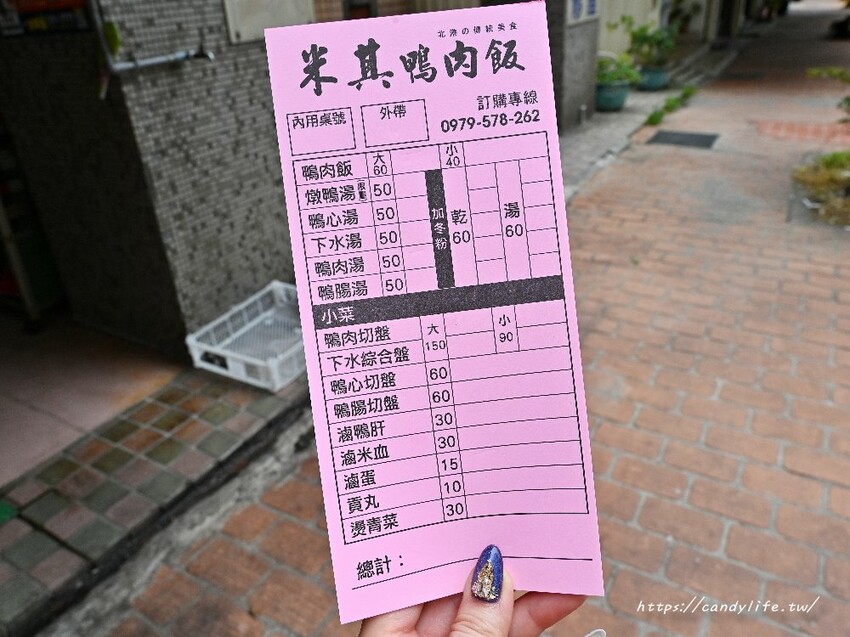 北港の傳統美食
米其鴨肉飯
內用桌號 外帶 訂購專線
0979-578-262
鴨肉飯 大60 小40
燉鴨湯 限量 50
鴨心湯 50
下水湯 50
鴨肉湯 50
鴨腸湯 50
加冬粉 乾60 湯60
小菜
鴨肉切盤 大150 小90
下水綜合盤
鴨心切盤 60
鴨腸切盤 60
滷鴨肝 30
滷米血 30
滷蛋 15
貢丸 10
燙青菜 30
總計：
https://candylife.tw/